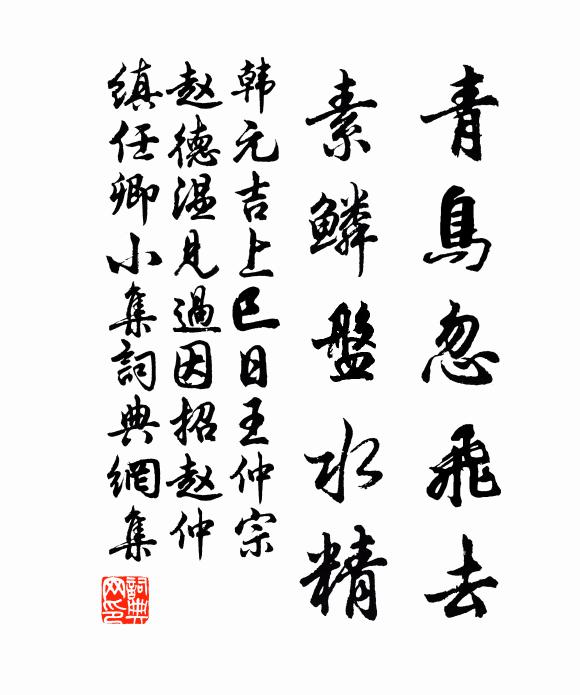 青鳥忽飛去
素鱗盤水精
韩元吉上巳日王仲宗
赵德温见過因招赵仲
縝任卿小集詞典網集
詞典網印